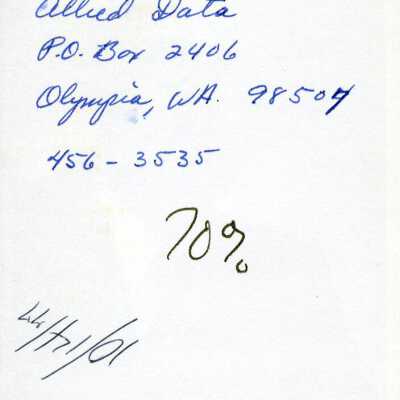 Allied Data
P.O. Box 2406
Olympia, WA. 98507
456-3535
70%
10/14/77